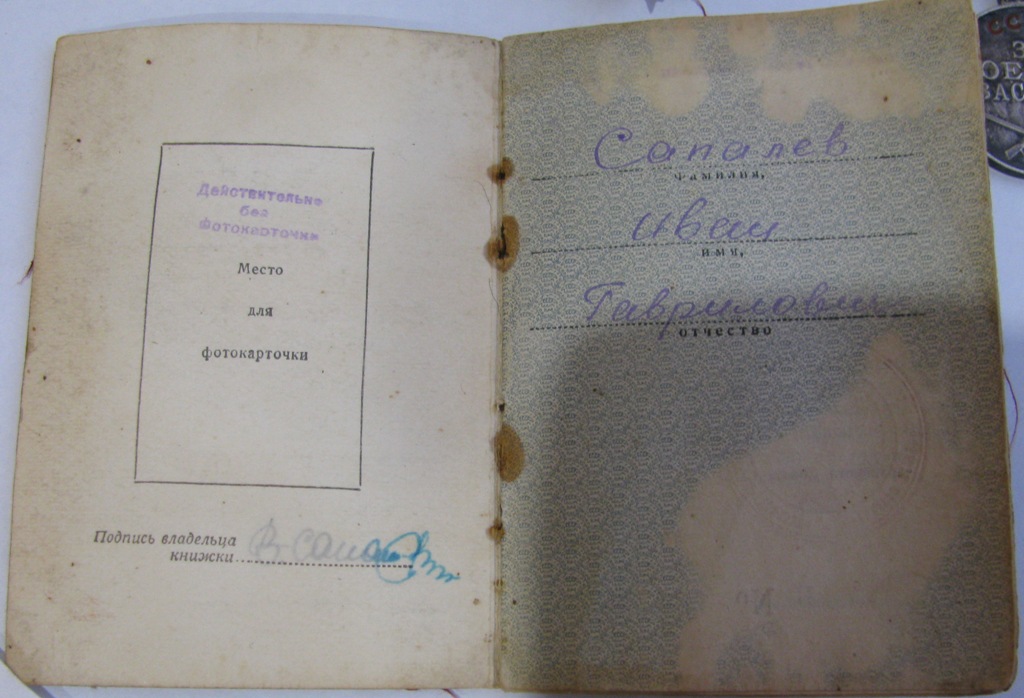 Действительно
без
фотокарточки
Место
для
фотокарточки
Подпись владельца
книжки
Сапалев
фамилия,
Иван
имя,
Гаврилович
отчество
№
ССС
З
ОЕ
ЗАС